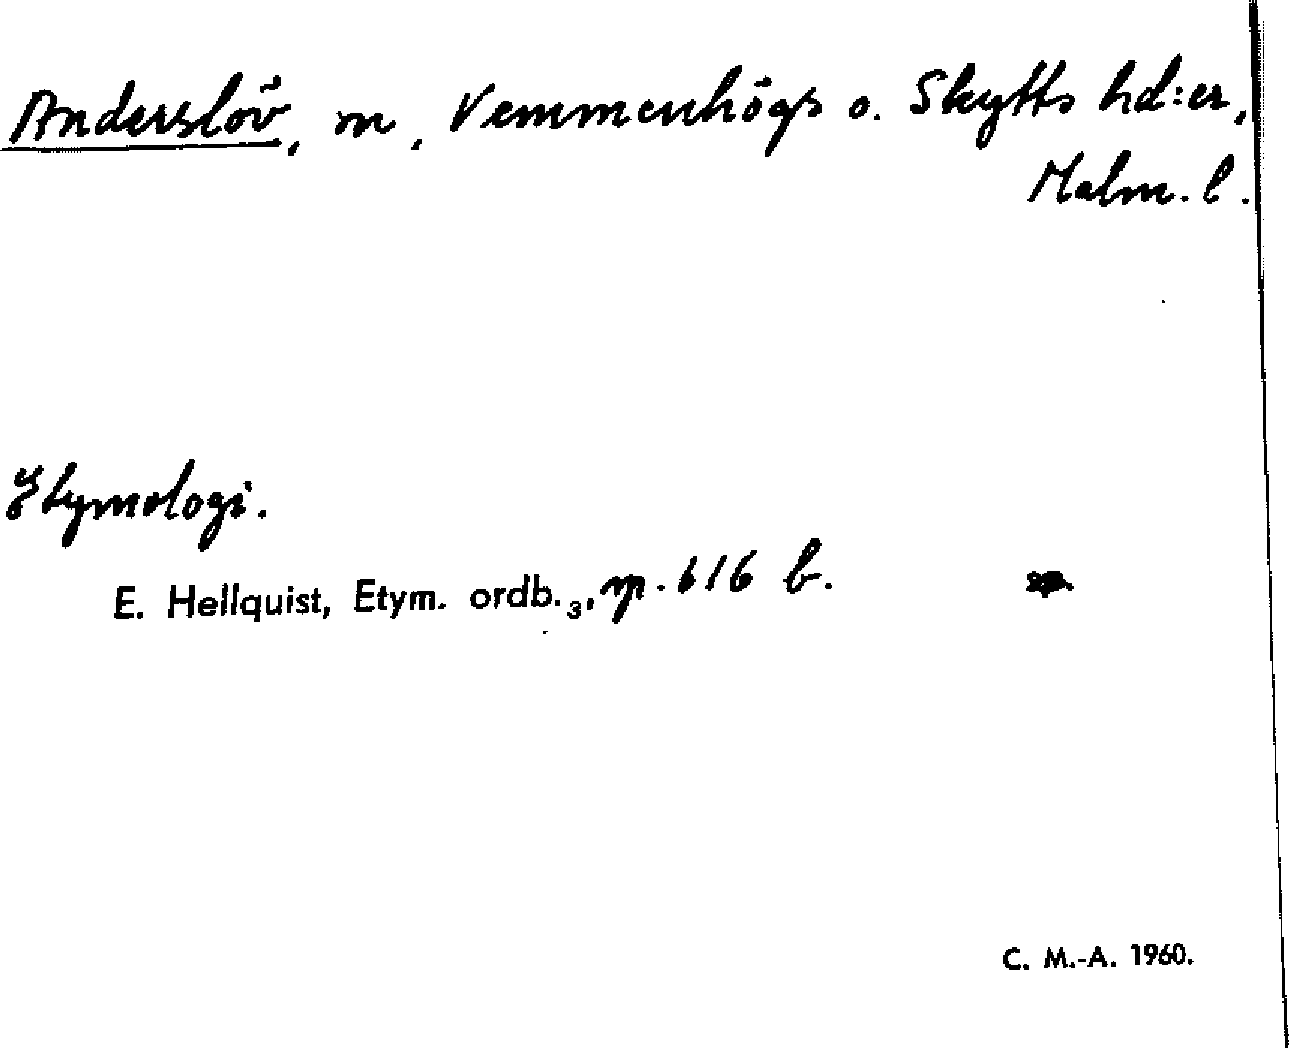 Anderslöv, sn, Vemmenhögs o. Skytts hd:er,
Malm. l.
Etymologi.
E. Hellquist, Etym. ordb.₃, sp. 616 b.
C. M.-A. 1960.